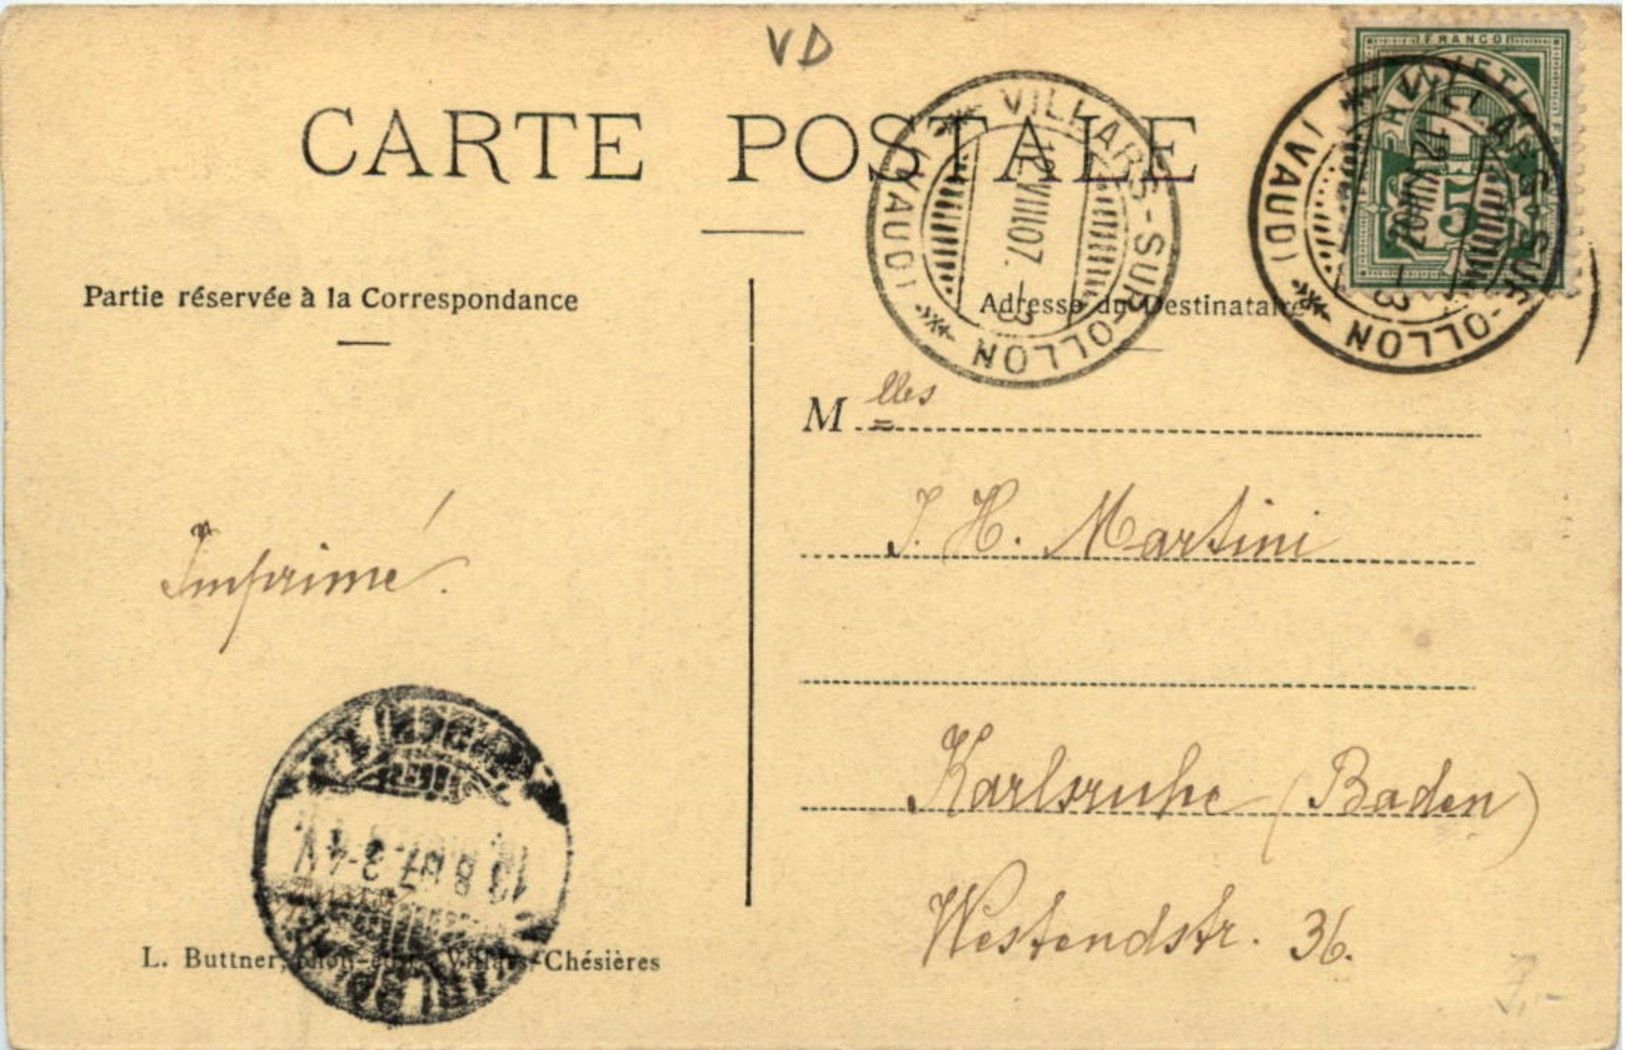 VD
CARTE POSTALE
FRANCO
HELVETIA
5
VILLARS-SUR-OLLON
(VAUD)
12.VIII07.-3
VILLARS-SUR-OLLON
(VAUD)
12.VIII07.-3
Partie réservée à la Correspondance
Adresse du Destinataire
M lles
J. H. Martini
Imprimé.
Karlsruhe (Baden)
Westendstr. 36.
13.8.07.3-4N
L. Buttner, Villars-Chésières
7,-